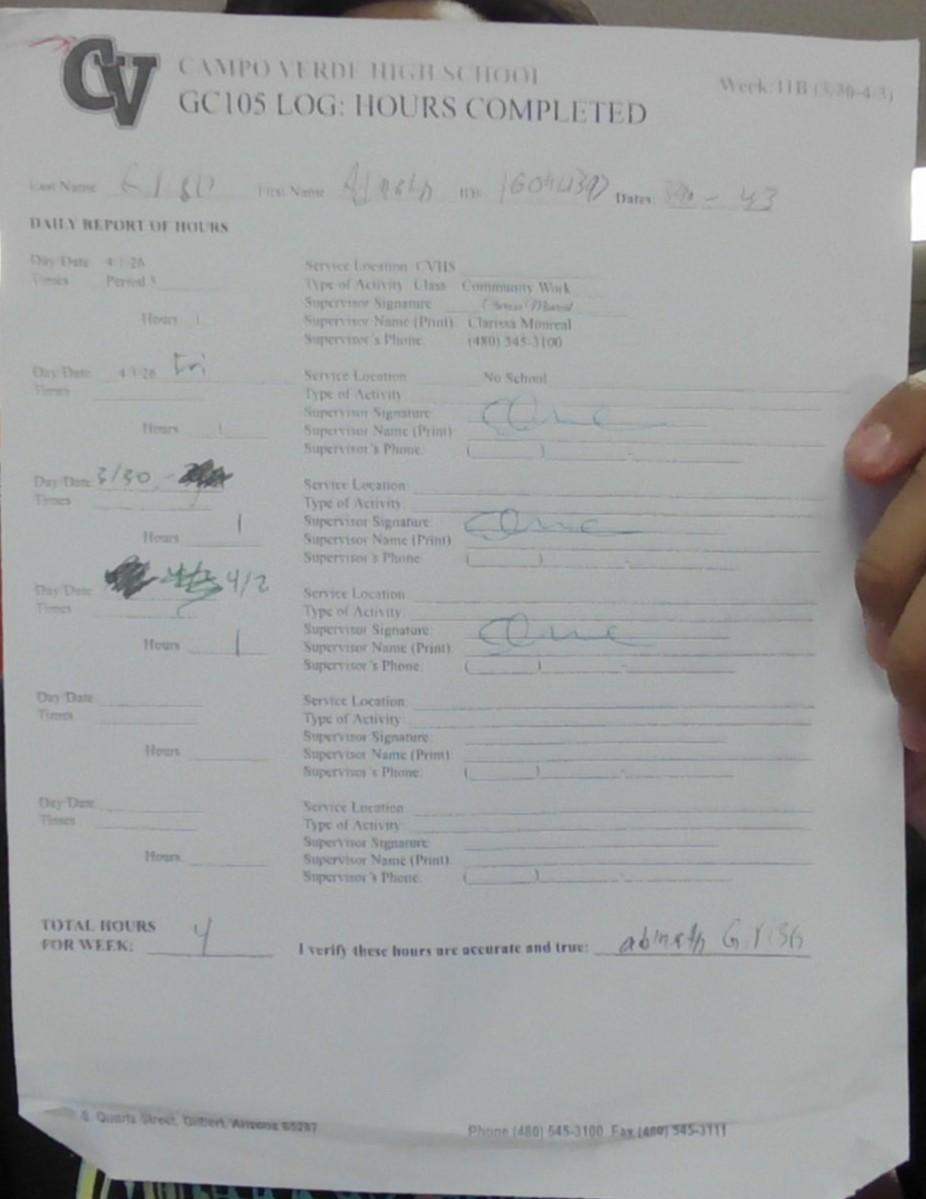 CV
CAMPO VERDE HIGH SCHOOL
GC105 LOG: HOURS COMPLETED
Week: 11B (3/30-4/3)
Last Name First Name ID# Dates: - 4/3
DAILY REPORT OF HOURS
Day/Date 4-1-26 Service Location CVHS
Times Period 3 Type of Activity Class Community Work
Supervisor Signature
Hours 1 Supervisor Name (Print) Clarissa Monreal
Supervisor's Phone: (480) 545-3100
Day/Date Fri Service Location No School
Times Type of Activity
Supervisor Signature
Hours 1 Supervisor Name (Print)
Supervisor's Phone: ( ) -
Day/Date 3/30 - Service Location
Times Type of Activity
Supervisor Signature
Hours 1 Supervisor Name (Print)
Supervisor's Phone ( ) -
Day/Date 4/2 Service Location
Times Type of Activity
Supervisor Signature
Hours 1 Supervisor Name (Print)
Supervisor's Phone: ( ) -
Day/Date Service Location
Times Type of Activity
Supervisor Signature
Hours Supervisor Name (Print)
Supervisor's Phone: ( ) -
Day/Date Service Location
Times Type of Activity
Supervisor Signature
Hours Supervisor Name (Print)
Supervisor's Phone: ( ) -
TOTAL HOURS
FOR WEEK: 4 I verify these hours are accurate and true:
S. Quartz Street, Gilbert, Arizona 85297 Phone (480) 545-3100 Fax (480) 545-3111